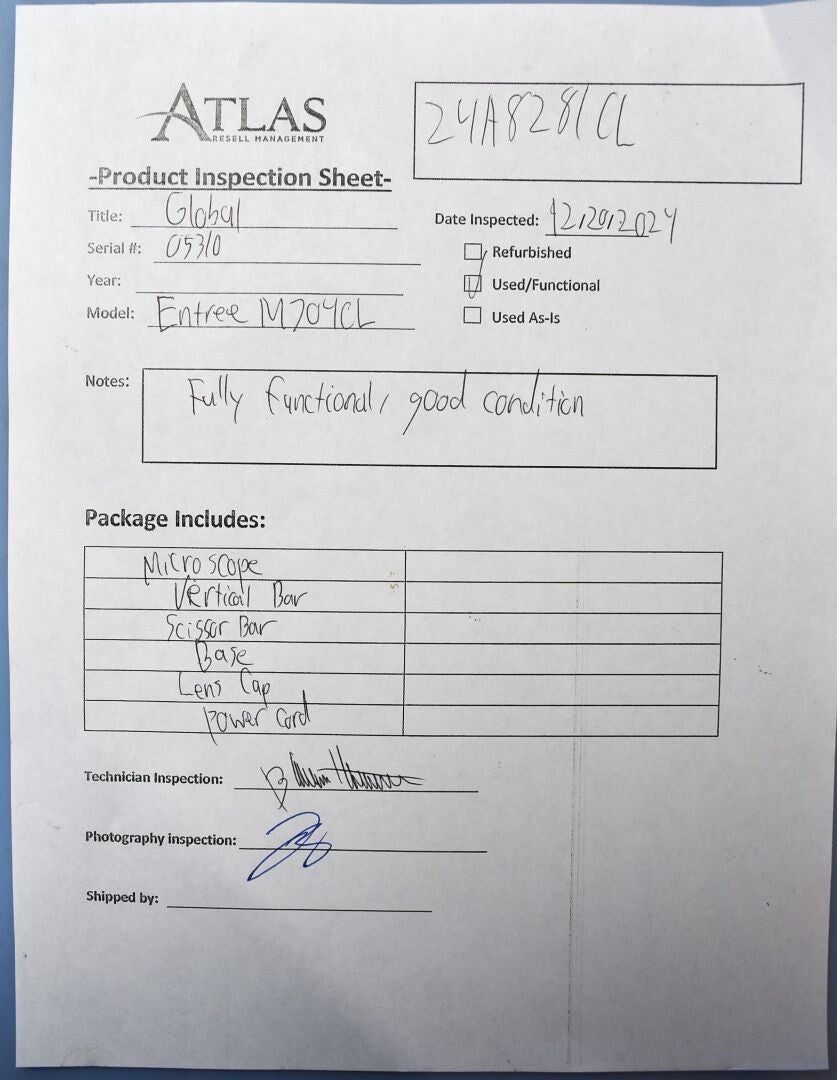 ATLAS
RESELL MANAGEMENT
24A8281CL
-Product Inspection Sheet-
Title: Global
Date Inspected: 12/20/2024
Serial #: 05310
Refurbished
Year:
Used/Functional
Model: Entree M704CL
Used As-Is
Notes: Fully functional, good condition
Package Includes:
Microscope
Vertical Bar
Scissor Bar
Base
Lens Cap
Power Cord
Technician Inspection:
Photography inspection:
Shipped by: